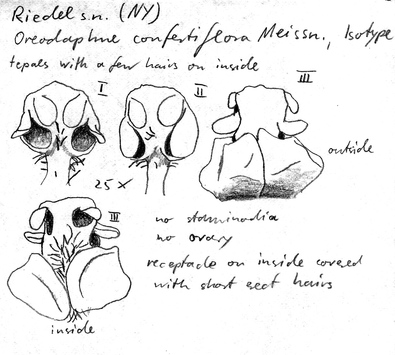 Riedel s.n. (NY)
Oreodaphne confertiflora Meissn., Isotype
tepals with a few hairs on inside
I
II
III
outside
25 x
III
no staminodia
no ovary
receptacle on inside covered
with short eect hairs
inside